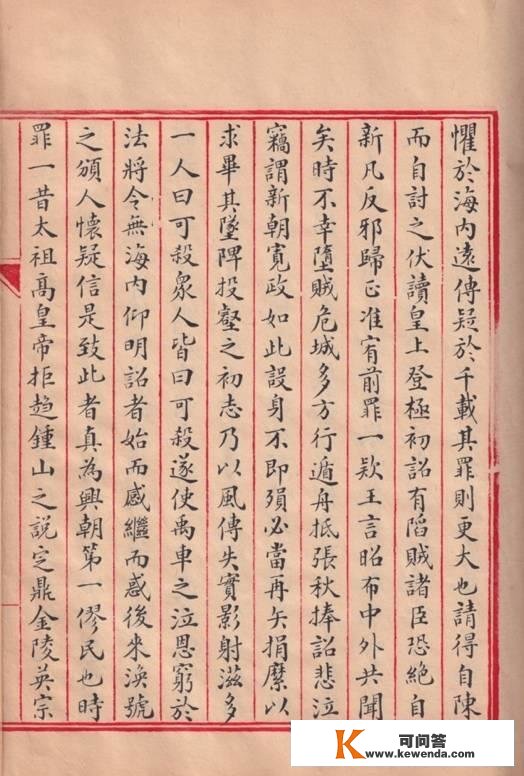 懼於海内遠傳疑於千載其罪則更大也請得自陳
而自討之伏讀皇上登極初詔有䧟賊諸臣恐絶自
新凡反邪歸正准宥前罪一欵王言昭布中外共聞
矣時不幸墮賊危城多方行遁舟抵張秋捧詔悲泣
竊謂新朝寛政如此設身不即殞必當再矢捐縻以
求畢其墜陴投壑之初志乃以風傳失實影射滋多
一人曰可殺衆人皆曰可殺遂使禹車之泣恩窮於
法將令無海内仰明詔者始而感繼而惑後來渙號
之頒人懷疑信是致此者真為興朝第一僇民也時
罪一昔太祖高皇帝拒趋鍾山之説定鼎金陵英宗
可问答
www.kewenda.com